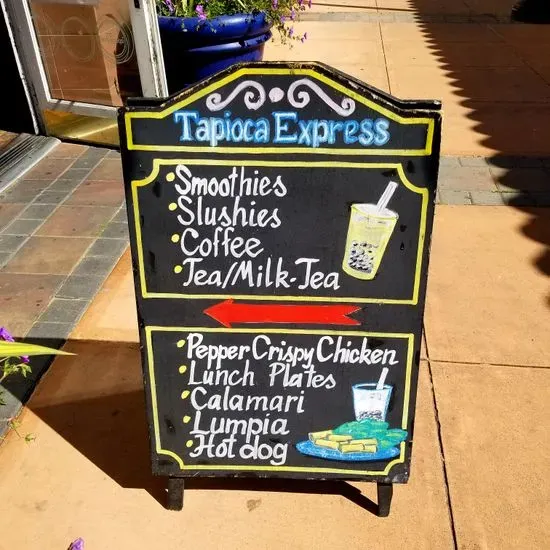 Tapioca Express
Smoothies
Slushies
Coffee
Tea/Milk-Tea
Pepper Crispy Chicken
Lunch Plates
Calamari
Lumpia
Hot dog